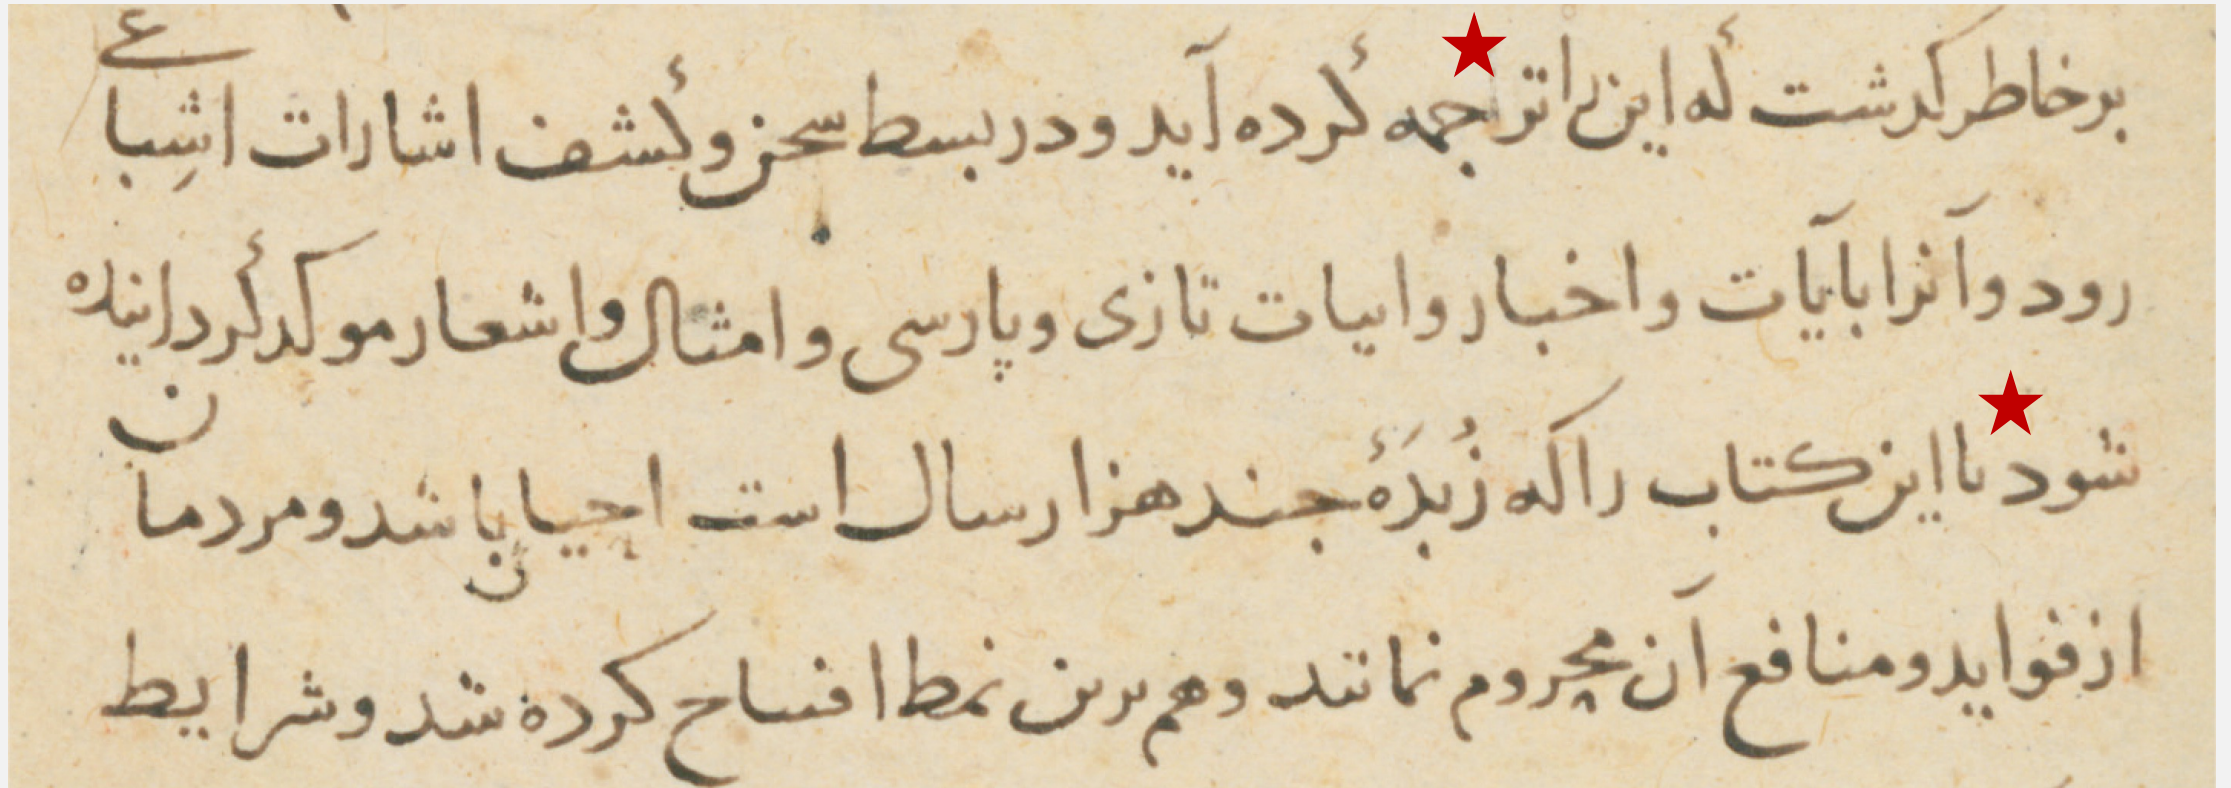 برخاطر کدشت که این را ترجمه کرده آید ودر بسط سخن وکشف اشارات اشباع
رود وآنرا بآیات واخبار وابیات تازی وپارسی وامثال واشعار موکد کردانیده
شود تا این کتاب را که زُبدَۀ جند هزار سال است احیا باشد ومردمان
از فواید ومنافع آن محروم نمانند وهم برین نمط افتتاح کرده شد وشرایط